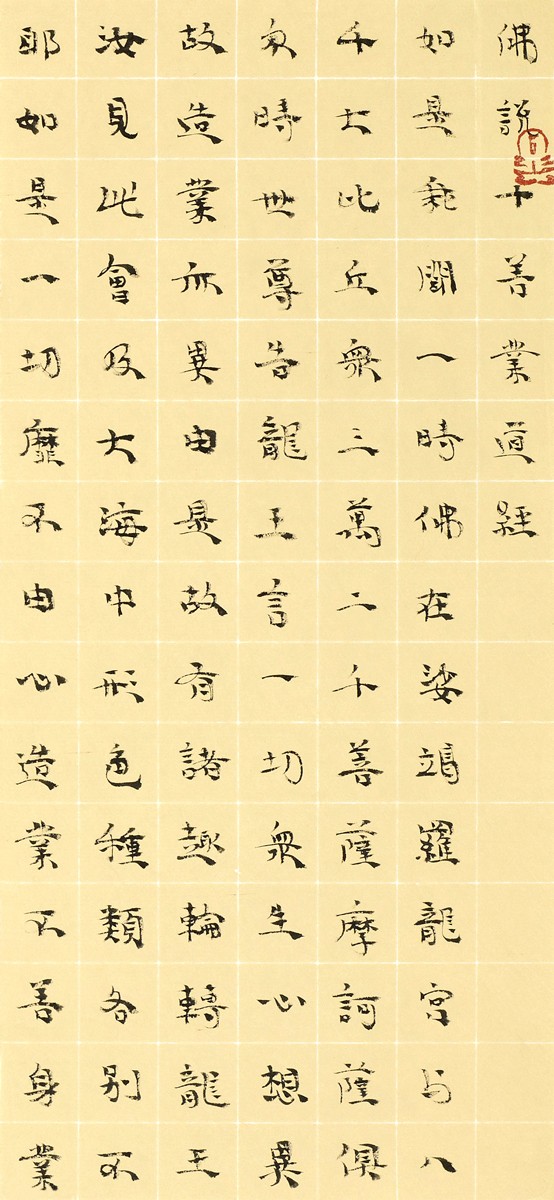 佛說十善業道經
如是我聞一時佛在娑竭羅龍宮与八
千大比丘衆三萬二千菩薩摩訶薩俱
尒時世尊告龍王言一切衆生心想異
故造業亦異由是故有諸趣輪轉龍王
汝見此會及大海中形色種類各別不
耶如是一切靡不由心造業不善身業